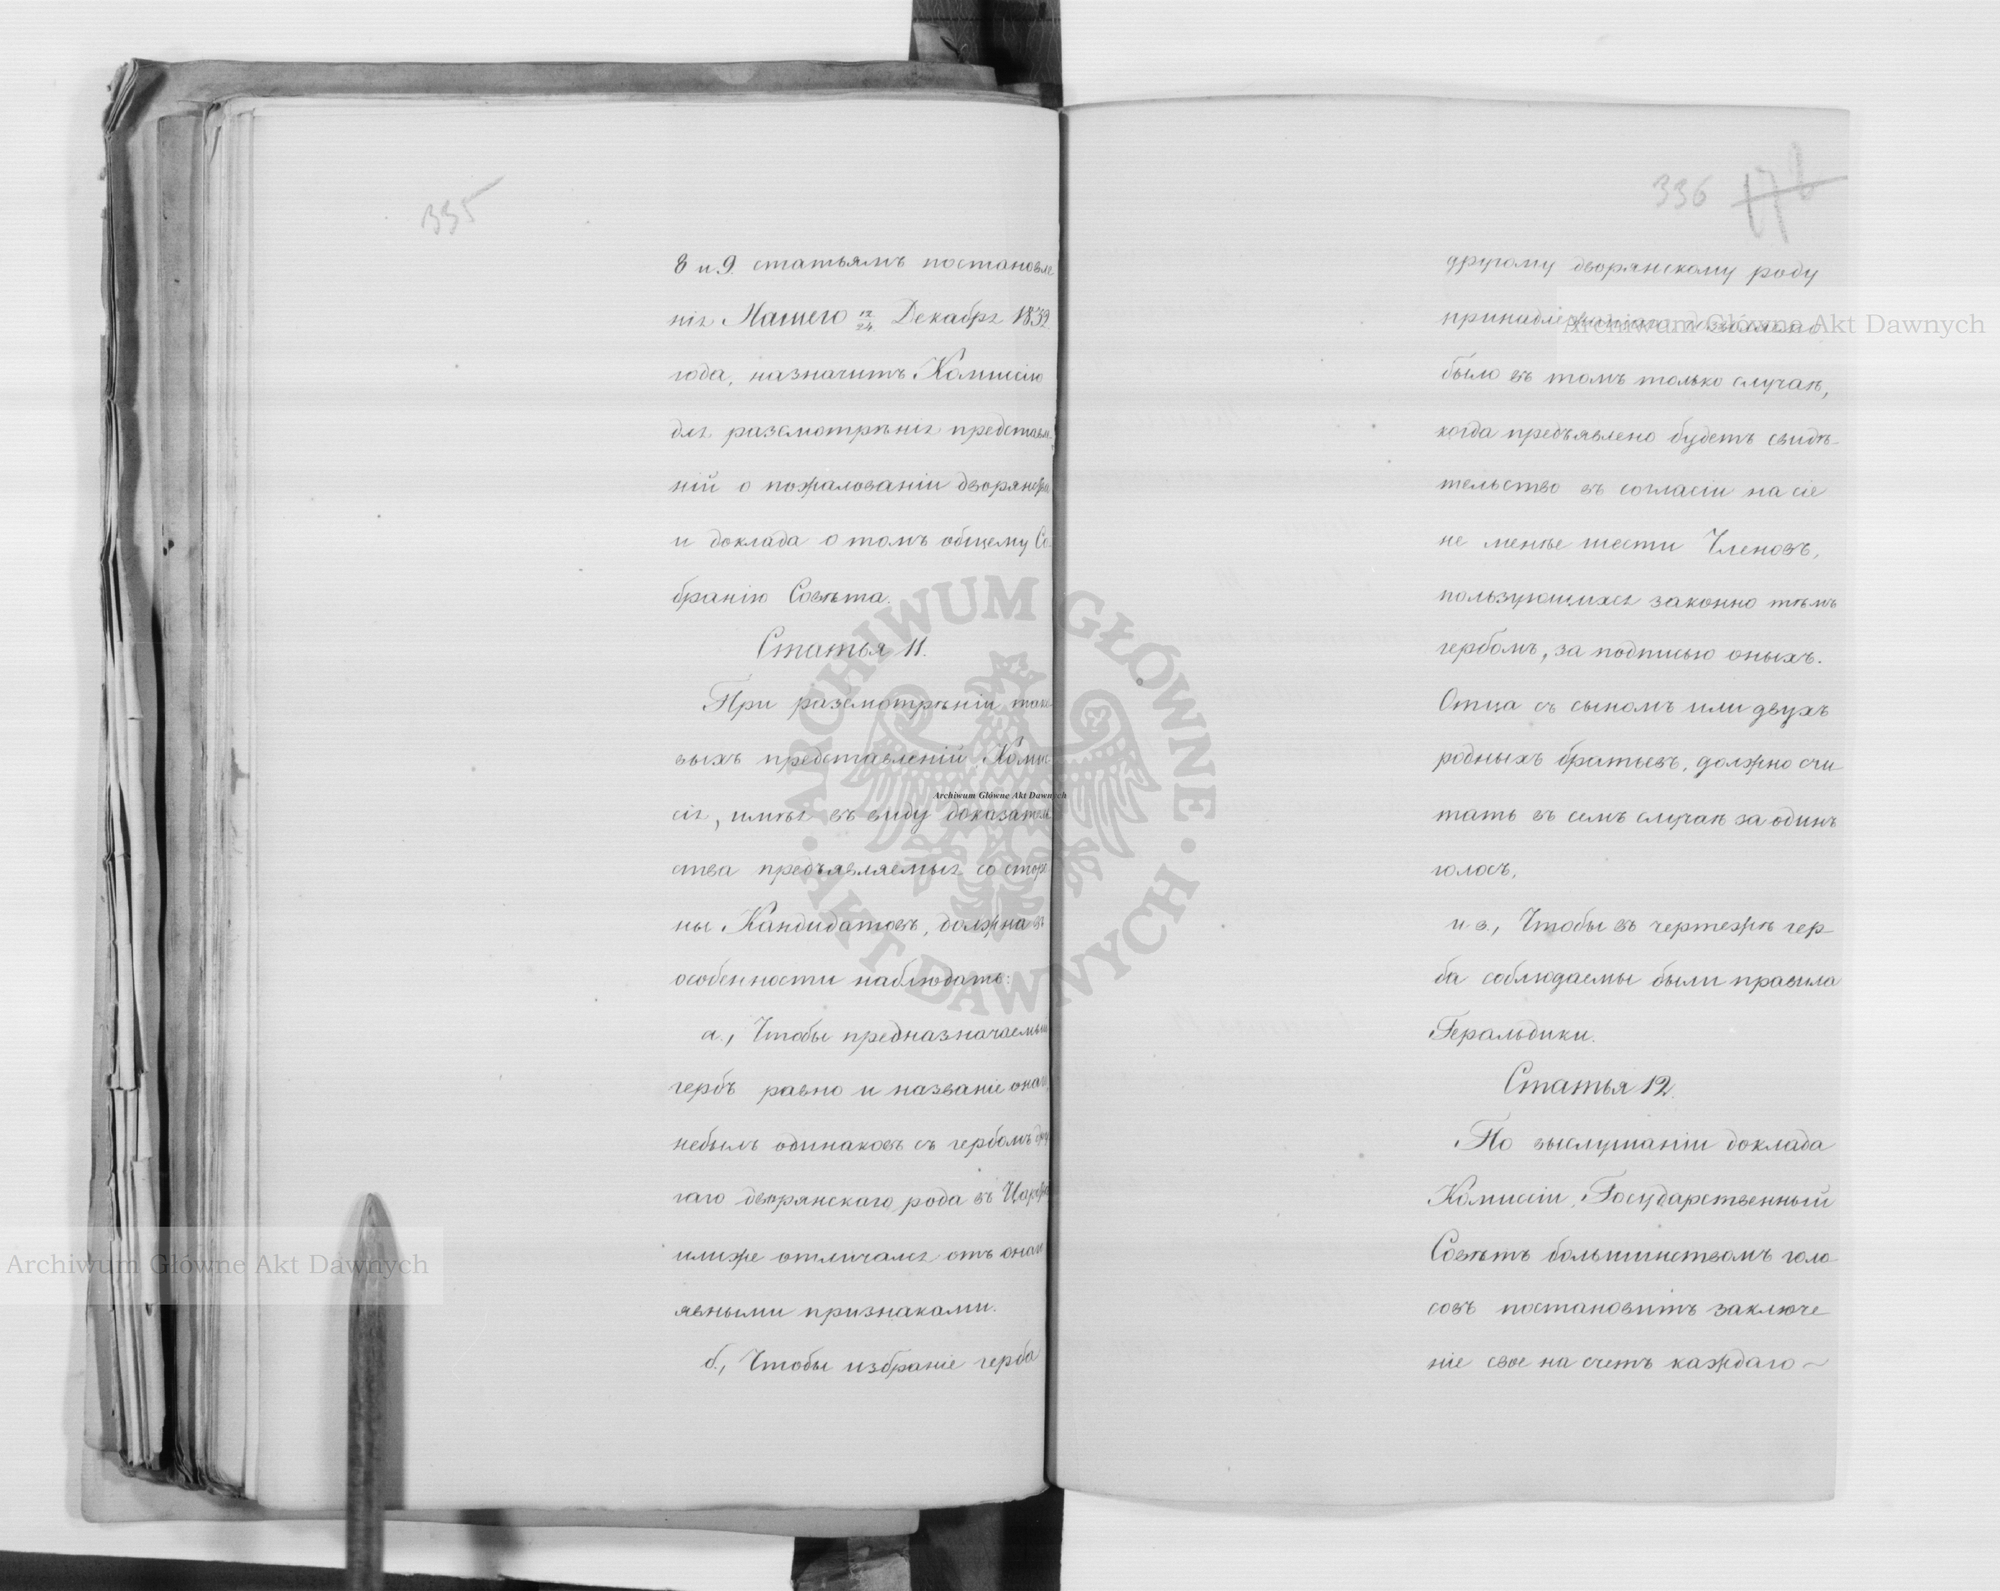 335
8 и 9 статьямъ постановле
нія Нашего 12/24 Декабря 1832
года, назначитъ Комисію
для разсмотрѣнія представле
ній о пожалованіи дворянства
и доклада о томъ общему Со
бранію Совѣта.
Статья 11.
При разсмотрѣніи тако
выхъ представленій Комис
сія, имѣя въ виду доказатель
ства предъявляемыя со сторо
ны Кандидатовъ, должна въ
особенности наблюдать:
а., Чтобы предназначаемый
гербъ равно и названіе онаго,
небылъ одинаковъ съ гербомъ дру
гаго дворянскаго рода въ Царствѣ
илиже отличался отъ онаго
явными признаками.
б., Чтобы избраніе герба
336
другому дворянскому роду
принадлежащаго дозволено
было въ томъ только случаѣ,
когда предъявлено будетъ свидѣ-
тельство въ согласіи на сіе
не менѣе шести Членовъ,
пользующихся законно тѣмъ
гербомъ, за подписью оныхъ.
Отца съ сыномъ или двухъ
родныхъ братьевъ, должно счи
тать въ семъ случаѣ за одинъ
голосъ.
и в., Чтобы въ чертежѣ гер-
ба соблюдаемы были правила
Геральдики.
Статья 12.
По выслушаніи доклада
Комисіи, Государственный
Совѣтъ большинствомъ голо
совъ постановитъ заключе
ніе свое на счетъ каждаго ~
Archiwum Główne Akt Dawnych
Archiwum Główne Akt Dawnych
Archiwum Główne Akt Dawnych
ARCHIWUM GŁÓWNE · AKT DAWNYCH ·